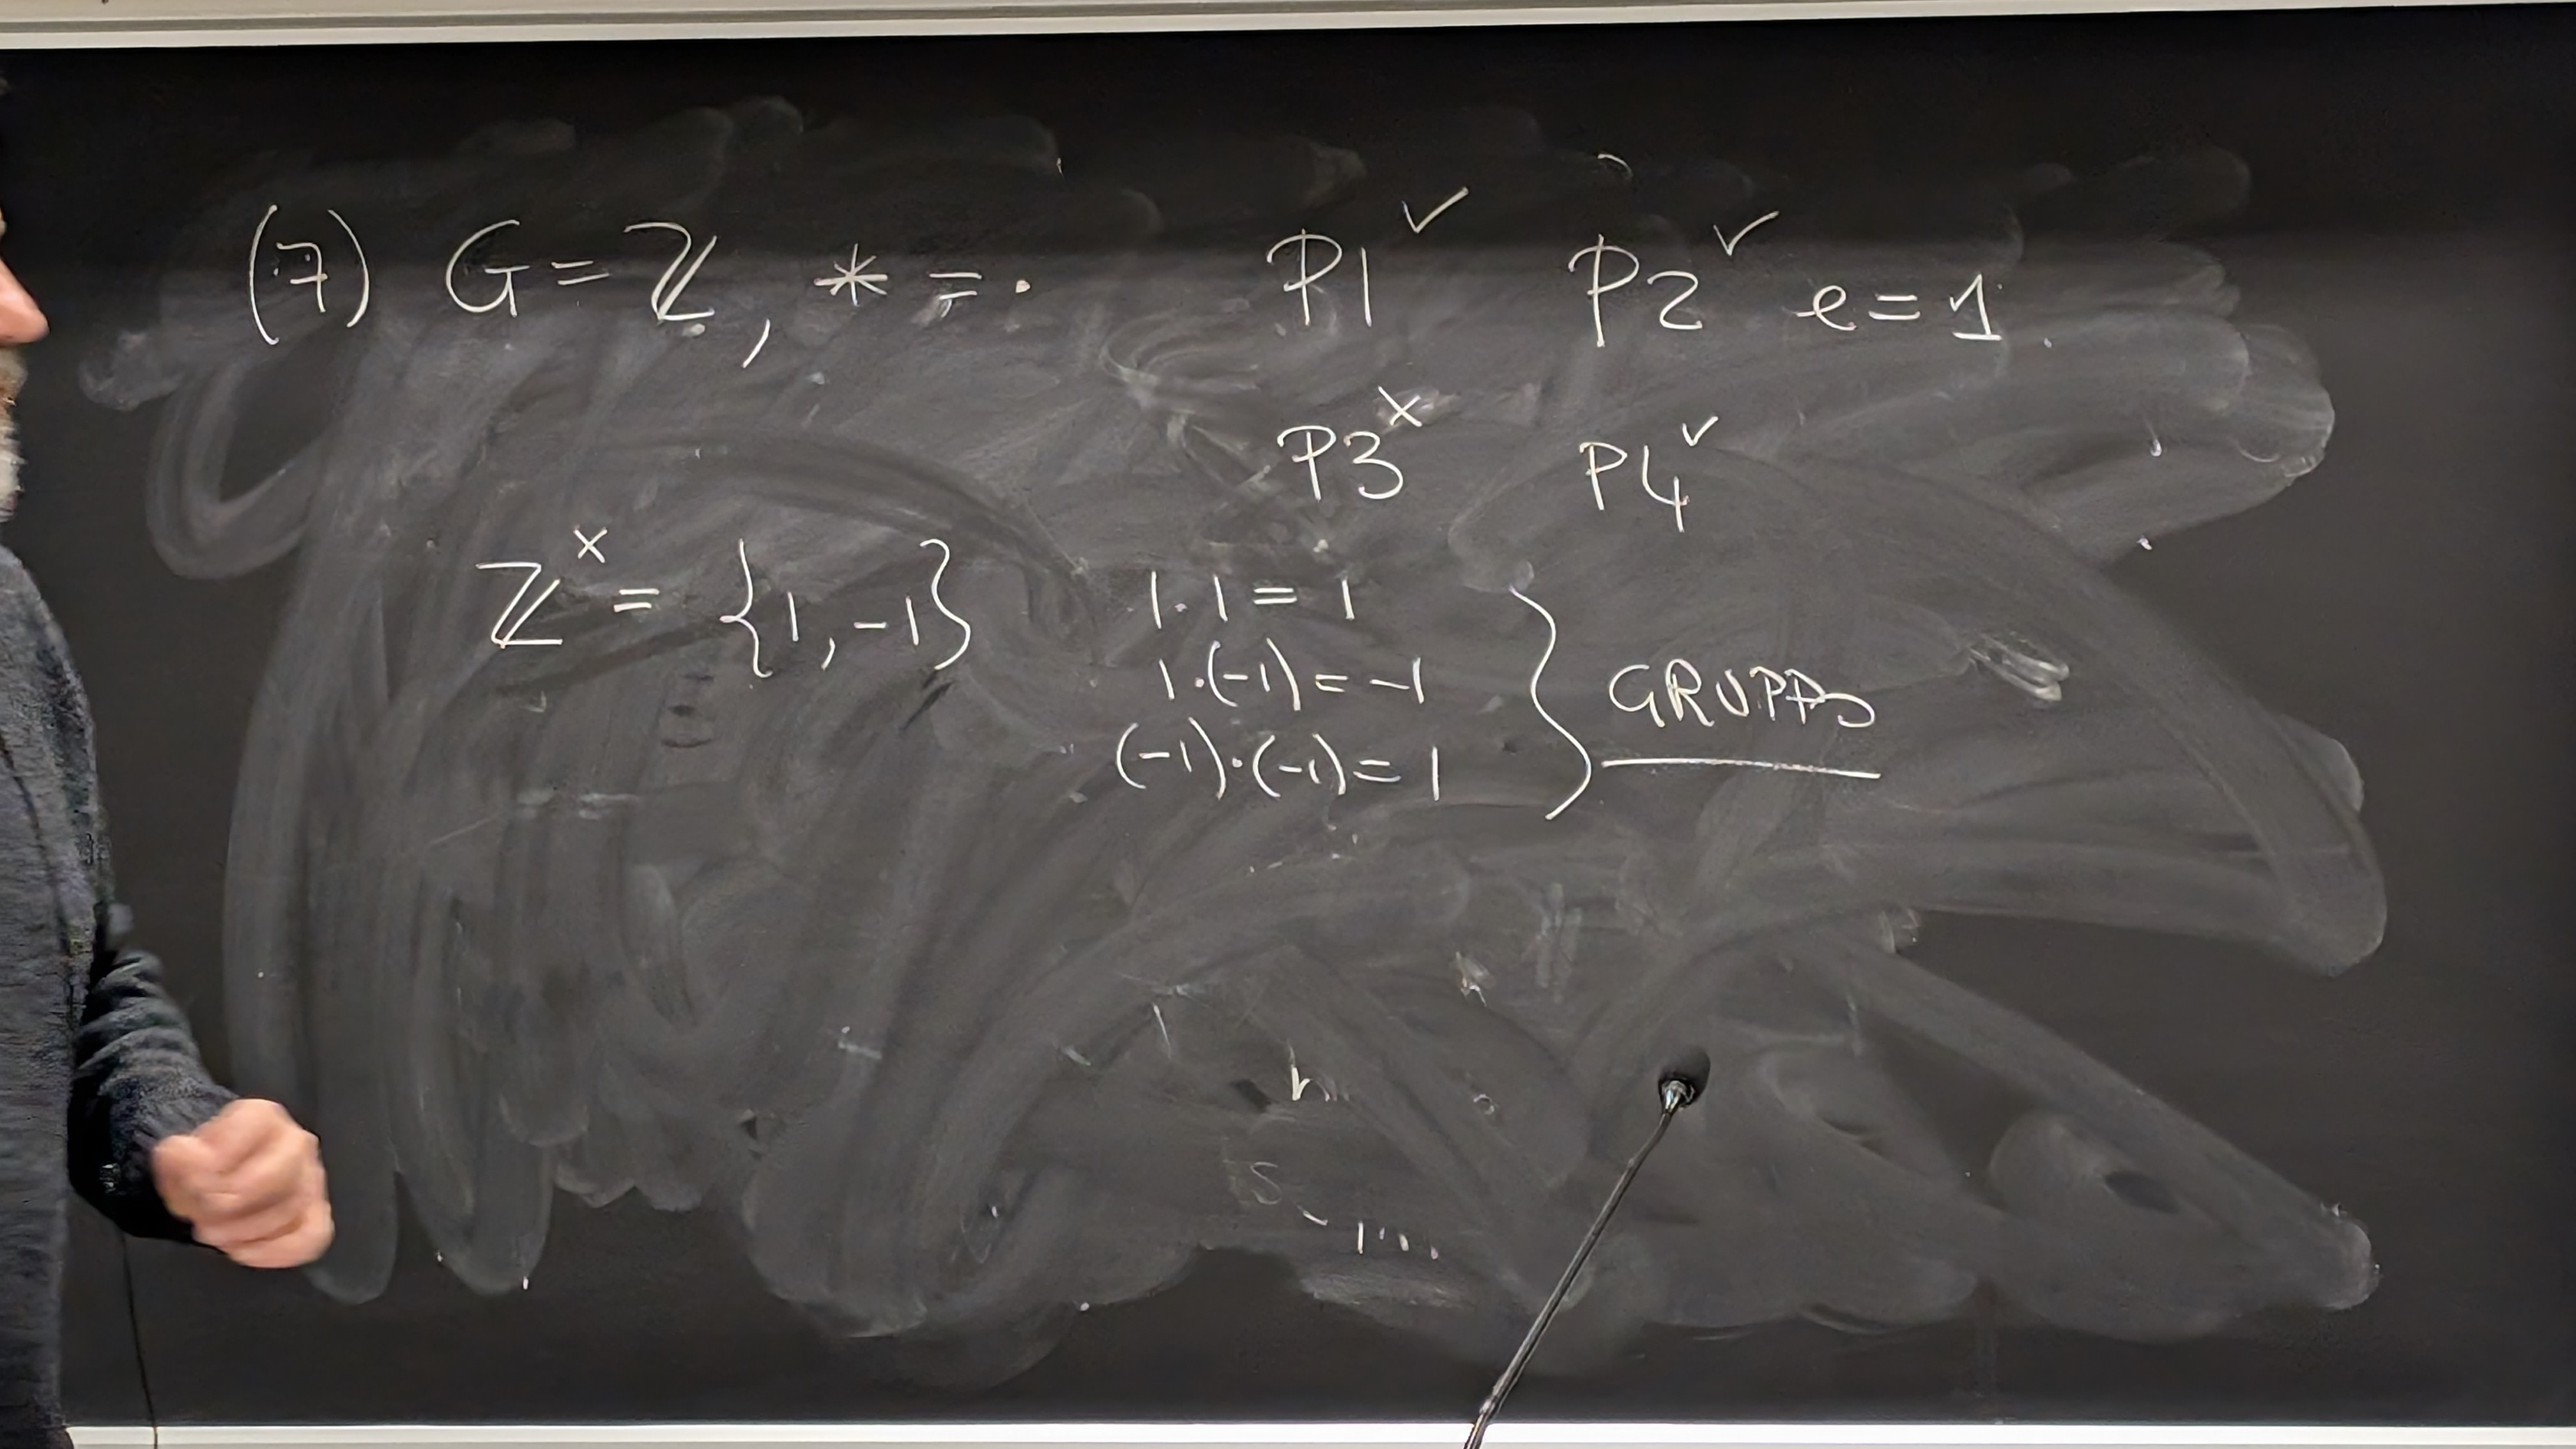 (7) G = ℤ, * = · P1 ✓ P2 ✓ e = 1
P3 × P4 ✓
ℤ^× = {1, -1} 1·1 = 1
1·(-1) = -1 } GRUPPO
(-1)·(-1) = 1